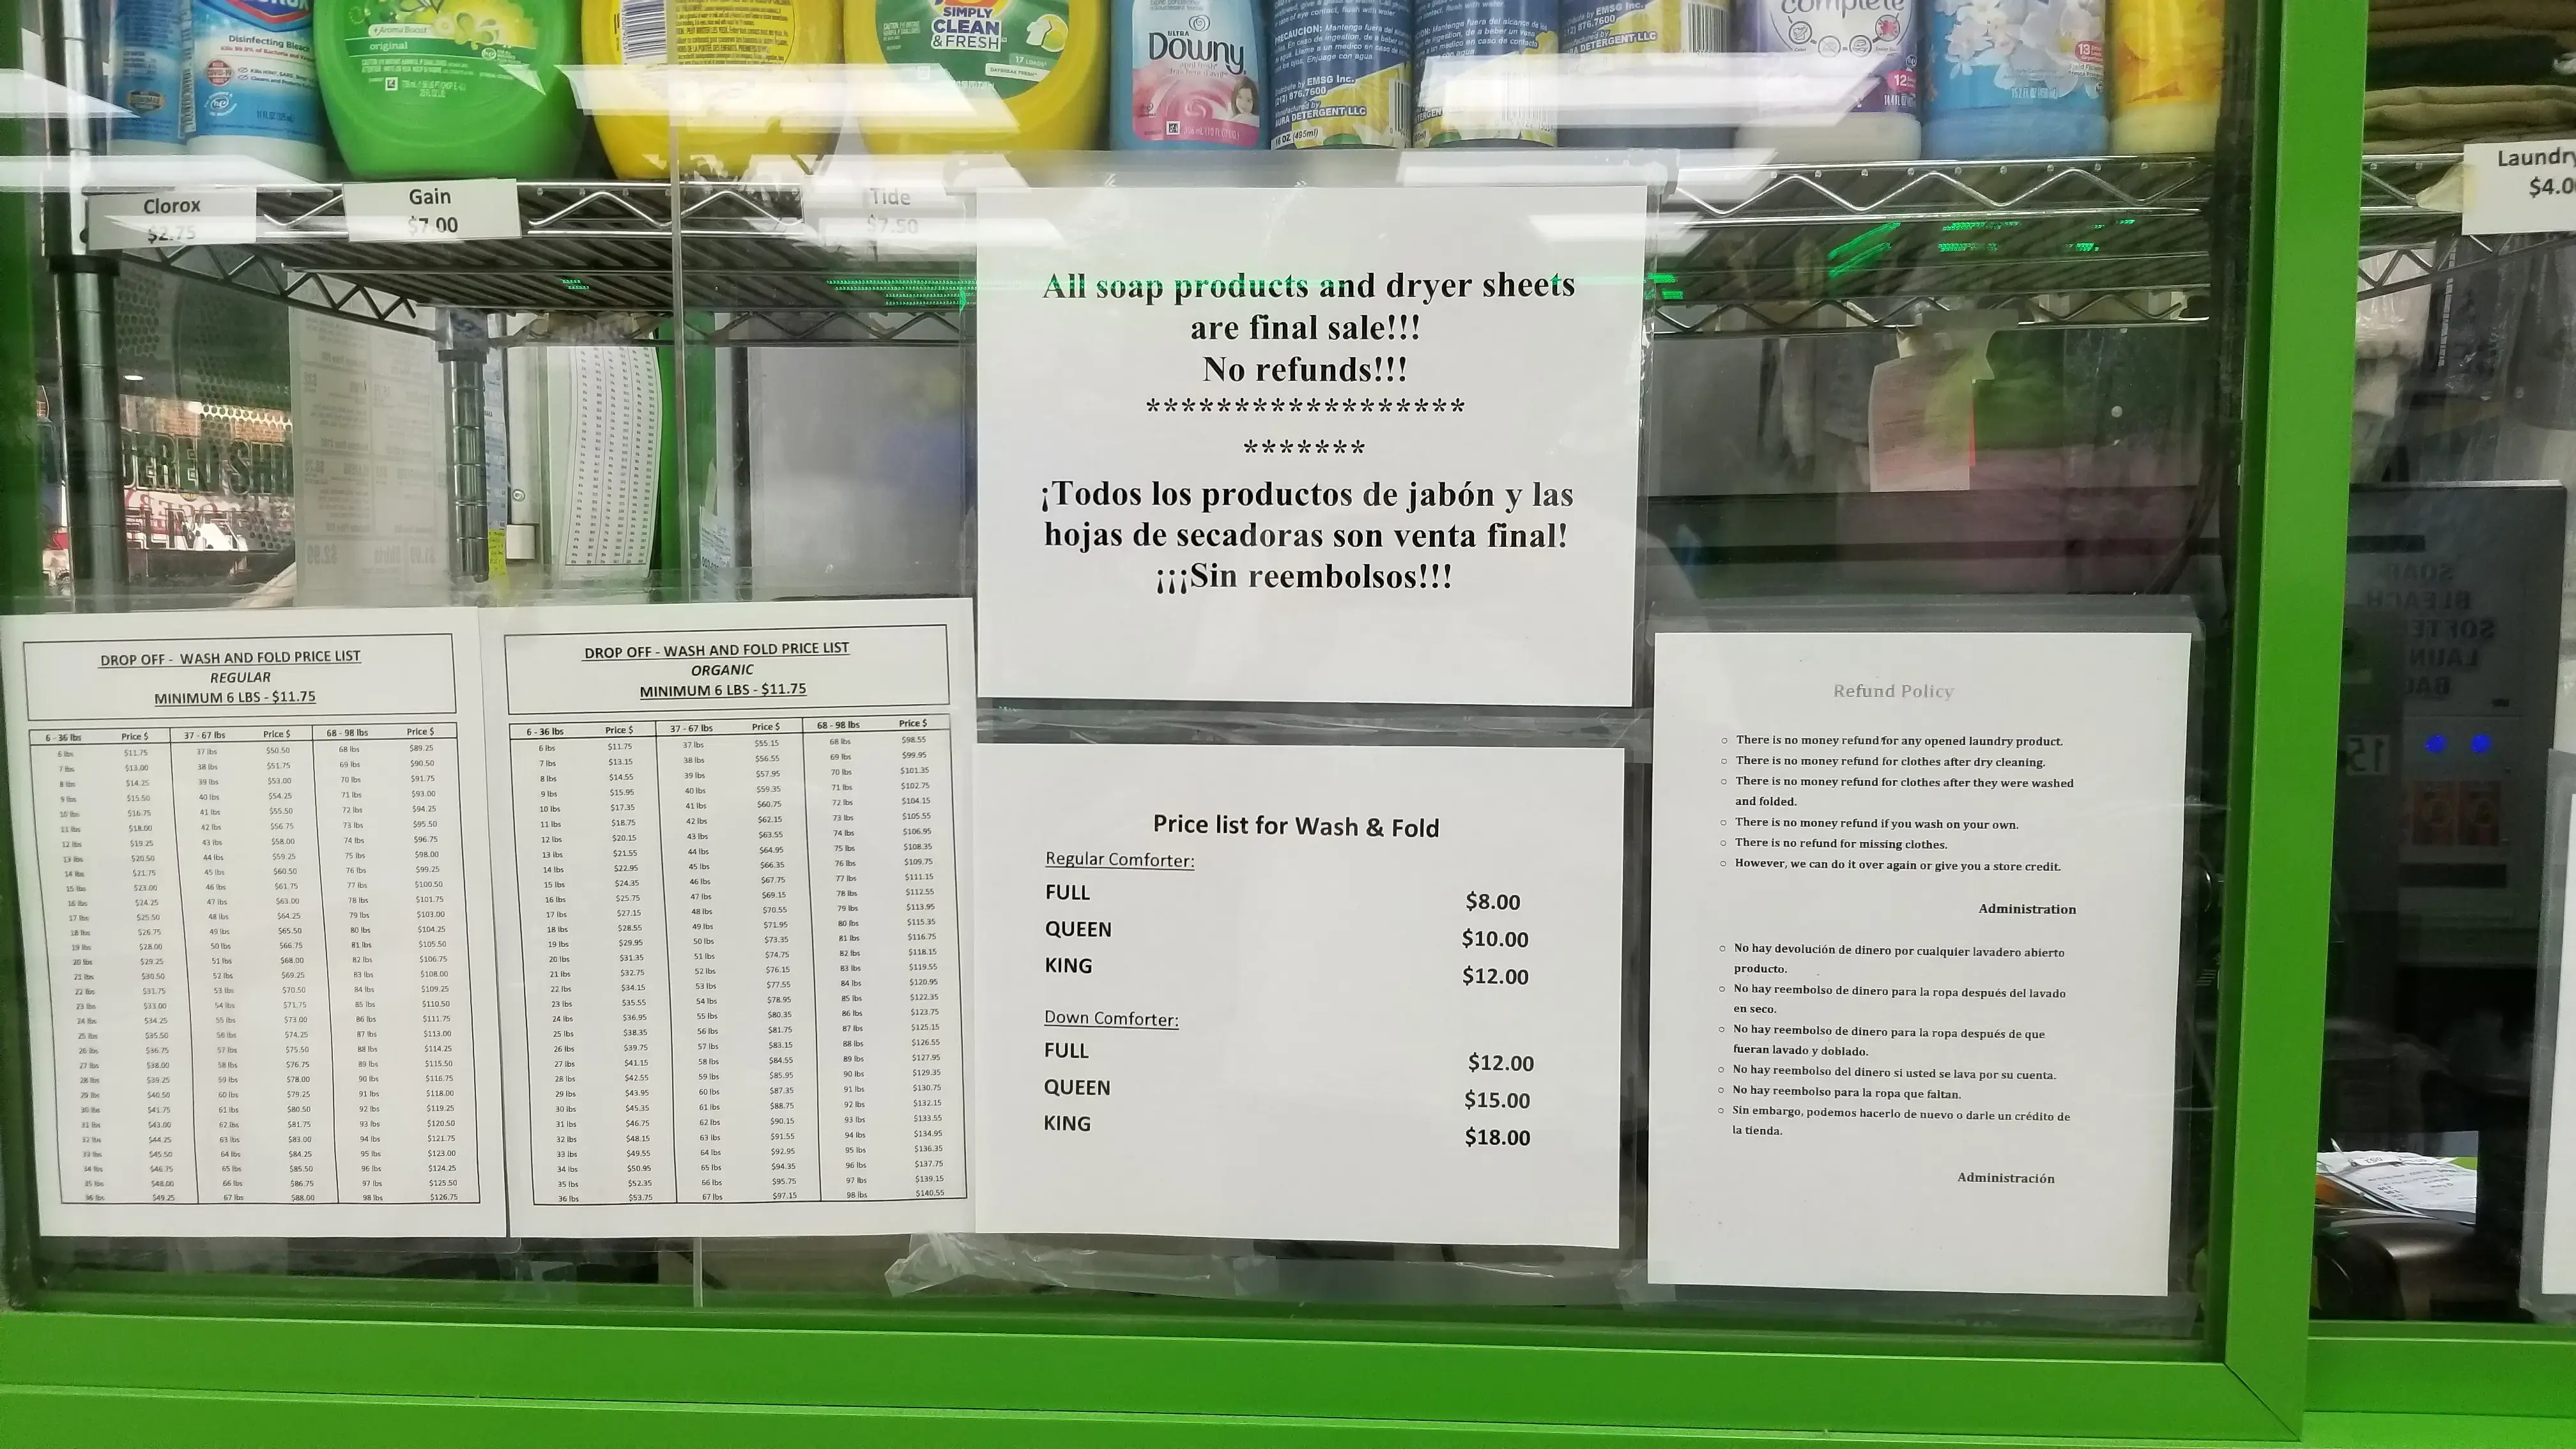 CLOROX
Disinfecting Bleach
+Aroma Boost
original
SIMPLY
CLEAN
& FRESH
17 LOADS
DAYBREAK FRESH
ULTRA
Downy
PRECAUCION: Mantenga fuera del alcance de
EMSG Inc.
(212) 876.7600
AURA DETERGENT LLC
complete
Clorox
$2.75
Gain
$7.00
Tide
$7.50
Laundry
All soap products and dryer sheets
are final sale!!!
No refunds!!!
******************
*******
¡Todos los productos de jabón y las
hojas de secadoras son venta final!
¡¡¡Sin reembolsos!!!
DROP OFF - WASH AND FOLD PRICE LIST
REGULAR
MINIMUM 6 LBS - $11.75
6 - 36 lbs Price $ 37 - 67 lbs Price $ 68 - 98 lbs Price $
6 lbs $11.75 37 lbs $50.50 68 lbs $89.25
7 lbs $13.00 38 lbs $51.75 69 lbs $90.50
8 lbs $14.25 39 lbs $53.00 70 lbs $91.75
9 lbs $15.50 40 lbs $54.25 71 lbs $93.00
10 lbs $16.75 41 lbs $55.50 72 lbs $94.25
11 lbs $18.00 42 lbs $56.75 73 lbs $95.50
12 lbs $19.25 43 lbs $58.00 74 lbs $96.75
13 lbs $20.50 44 lbs $59.25 75 lbs $98.00
14 lbs $21.75 45 lbs $60.50 76 lbs $99.25
15 lbs $23.00 46 lbs $61.75 77 lbs $100.50
16 lbs $24.25 47 lbs $63.00 78 lbs $101.75
17 lbs $25.50 48 lbs $64.25 79 lbs $103.00
18 lbs $26.75 49 lbs $65.50 80 lbs $104.25
19 lbs $28.00 50 lbs $66.75 81 lbs $105.50
20 lbs $29.25 51 lbs $68.00 82 lbs $106.75
21 lbs $30.50 52 lbs $69.25 83 lbs $108.00
22 lbs $31.75 53 lbs $70.50 84 lbs $109.25
23 lbs $33.00 54 lbs $71.75 85 lbs $110.50
24 lbs $34.25 55 lbs $73.00 86 lbs $111.75
25 lbs $35.50 56 lbs $74.25 87 lbs $113.00
26 lbs $36.75 57 lbs $75.50 88 lbs $114.25
27 lbs $38.00 58 lbs $76.75 89 lbs $115.50
28 lbs $39.25 59 lbs $78.00 90 lbs $116.75
29 lbs $40.50 60 lbs $79.25 91 lbs $118.00
30 lbs $41.75 61 lbs $80.50 92 lbs $119.25
31 lbs $43.00 62 lbs $81.75 93 lbs $120.50
32 lbs $44.25 63 lbs $83.00 94 lbs $121.75
33 lbs $45.50 64 lbs $84.25 95 lbs $123.00
34 lbs $46.75 65 lbs $85.50 96 lbs $124.25
35 lbs $48.00 66 lbs $86.75 97 lbs $125.50
36 lbs $49.25 67 lbs $88.00 98 lbs $126.75
DROP OFF - WASH AND FOLD PRICE LIST
ORGANIC
MINIMUM 6 LBS - $11.75
6 - 36 lbs Price $ 37 - 67 lbs Price $ 68 - 98 lbs Price $
6 lbs $11.75 37 lbs $55.15 68 lbs $98.55
7 lbs $13.15 38 lbs $56.55 69 lbs $99.95
8 lbs $14.55 39 lbs $57.95 70 lbs $101.35
9 lbs $15.95 40 lbs $59.35 71 lbs $102.75
10 lbs $17.35 41 lbs $60.75 72 lbs $104.15
11 lbs $18.75 42 lbs $62.15 73 lbs $105.55
12 lbs $20.15 43 lbs $63.55 74 lbs $106.95
13 lbs $21.55 44 lbs $64.95 75 lbs $108.35
14 lbs $22.95 45 lbs $66.35 76 lbs $109.75
15 lbs $24.35 46 lbs $67.75 77 lbs $111.15
16 lbs $25.75 47 lbs $69.15 78 lbs $112.55
17 lbs $27.15 48 lbs $70.55 79 lbs $113.95
18 lbs $28.55 49 lbs $71.95 80 lbs $115.35
19 lbs $29.95 50 lbs $73.35 81 lbs $116.75
20 lbs $31.35 51 lbs $74.75 82 lbs $118.15
21 lbs $32.75 52 lbs $76.15 83 lbs $119.55
22 lbs $34.15 53 lbs $77.55 84 lbs $120.95
23 lbs $35.55 54 lbs $78.95 85 lbs $122.35
24 lbs $36.95 55 lbs $80.35 86 lbs $123.75
25 lbs $38.35 56 lbs $81.75 87 lbs $125.15
26 lbs $39.75 57 lbs $83.15 88 lbs $126.55
27 lbs $41.15 58 lbs $84.55 89 lbs $127.95
28 lbs $42.55 59 lbs $85.95 90 lbs $129.35
29 lbs $43.95 60 lbs $87.35 91 lbs $130.75
30 lbs $45.35 61 lbs $88.75 92 lbs $132.15
31 lbs $46.75 62 lbs $90.15 93 lbs $133.55
32 lbs $48.15 63 lbs $91.55 94 lbs $134.95
33 lbs $49.55 64 lbs $92.95 95 lbs $136.35
34 lbs $50.95 65 lbs $94.35 96 lbs $137.75
35 lbs $52.35 66 lbs $95.75 97 lbs $139.15
36 lbs $53.75 67 lbs $97.15 98 lbs $140.55
Price list for Wash & Fold
Regular Comforter:
FULL $8.00
QUEEN $10.00
KING $12.00
Down Comforter:
FULL $12.00
QUEEN $15.00
KING $18.00
Refund Policy
○ There is no money refund for any opened laundry product.
○ There is no money refund for clothes after dry cleaning.
○ There is no money refund for clothes after they were washed
and folded.
○ There is no money refund if you wash on your own.
○ There is no refund for missing clothes.
○ However, we can do it over again or give you a store credit.
Administration
○ No hay devolución de dinero por cualquier lavadero abierto
producto.
○ No hay reembolso de dinero para la ropa después del lavado
en seco.
○ No hay reembolso de dinero para la ropa después de que
fueran lavado y doblado.
○ No hay reembolso del dinero si usted se lava por su cuenta.
○ No hay reembolso para la ropa que faltan.
○ Sin embargo, podemos hacerlo de nuevo o darle un crédito de
la tienda.
Administración